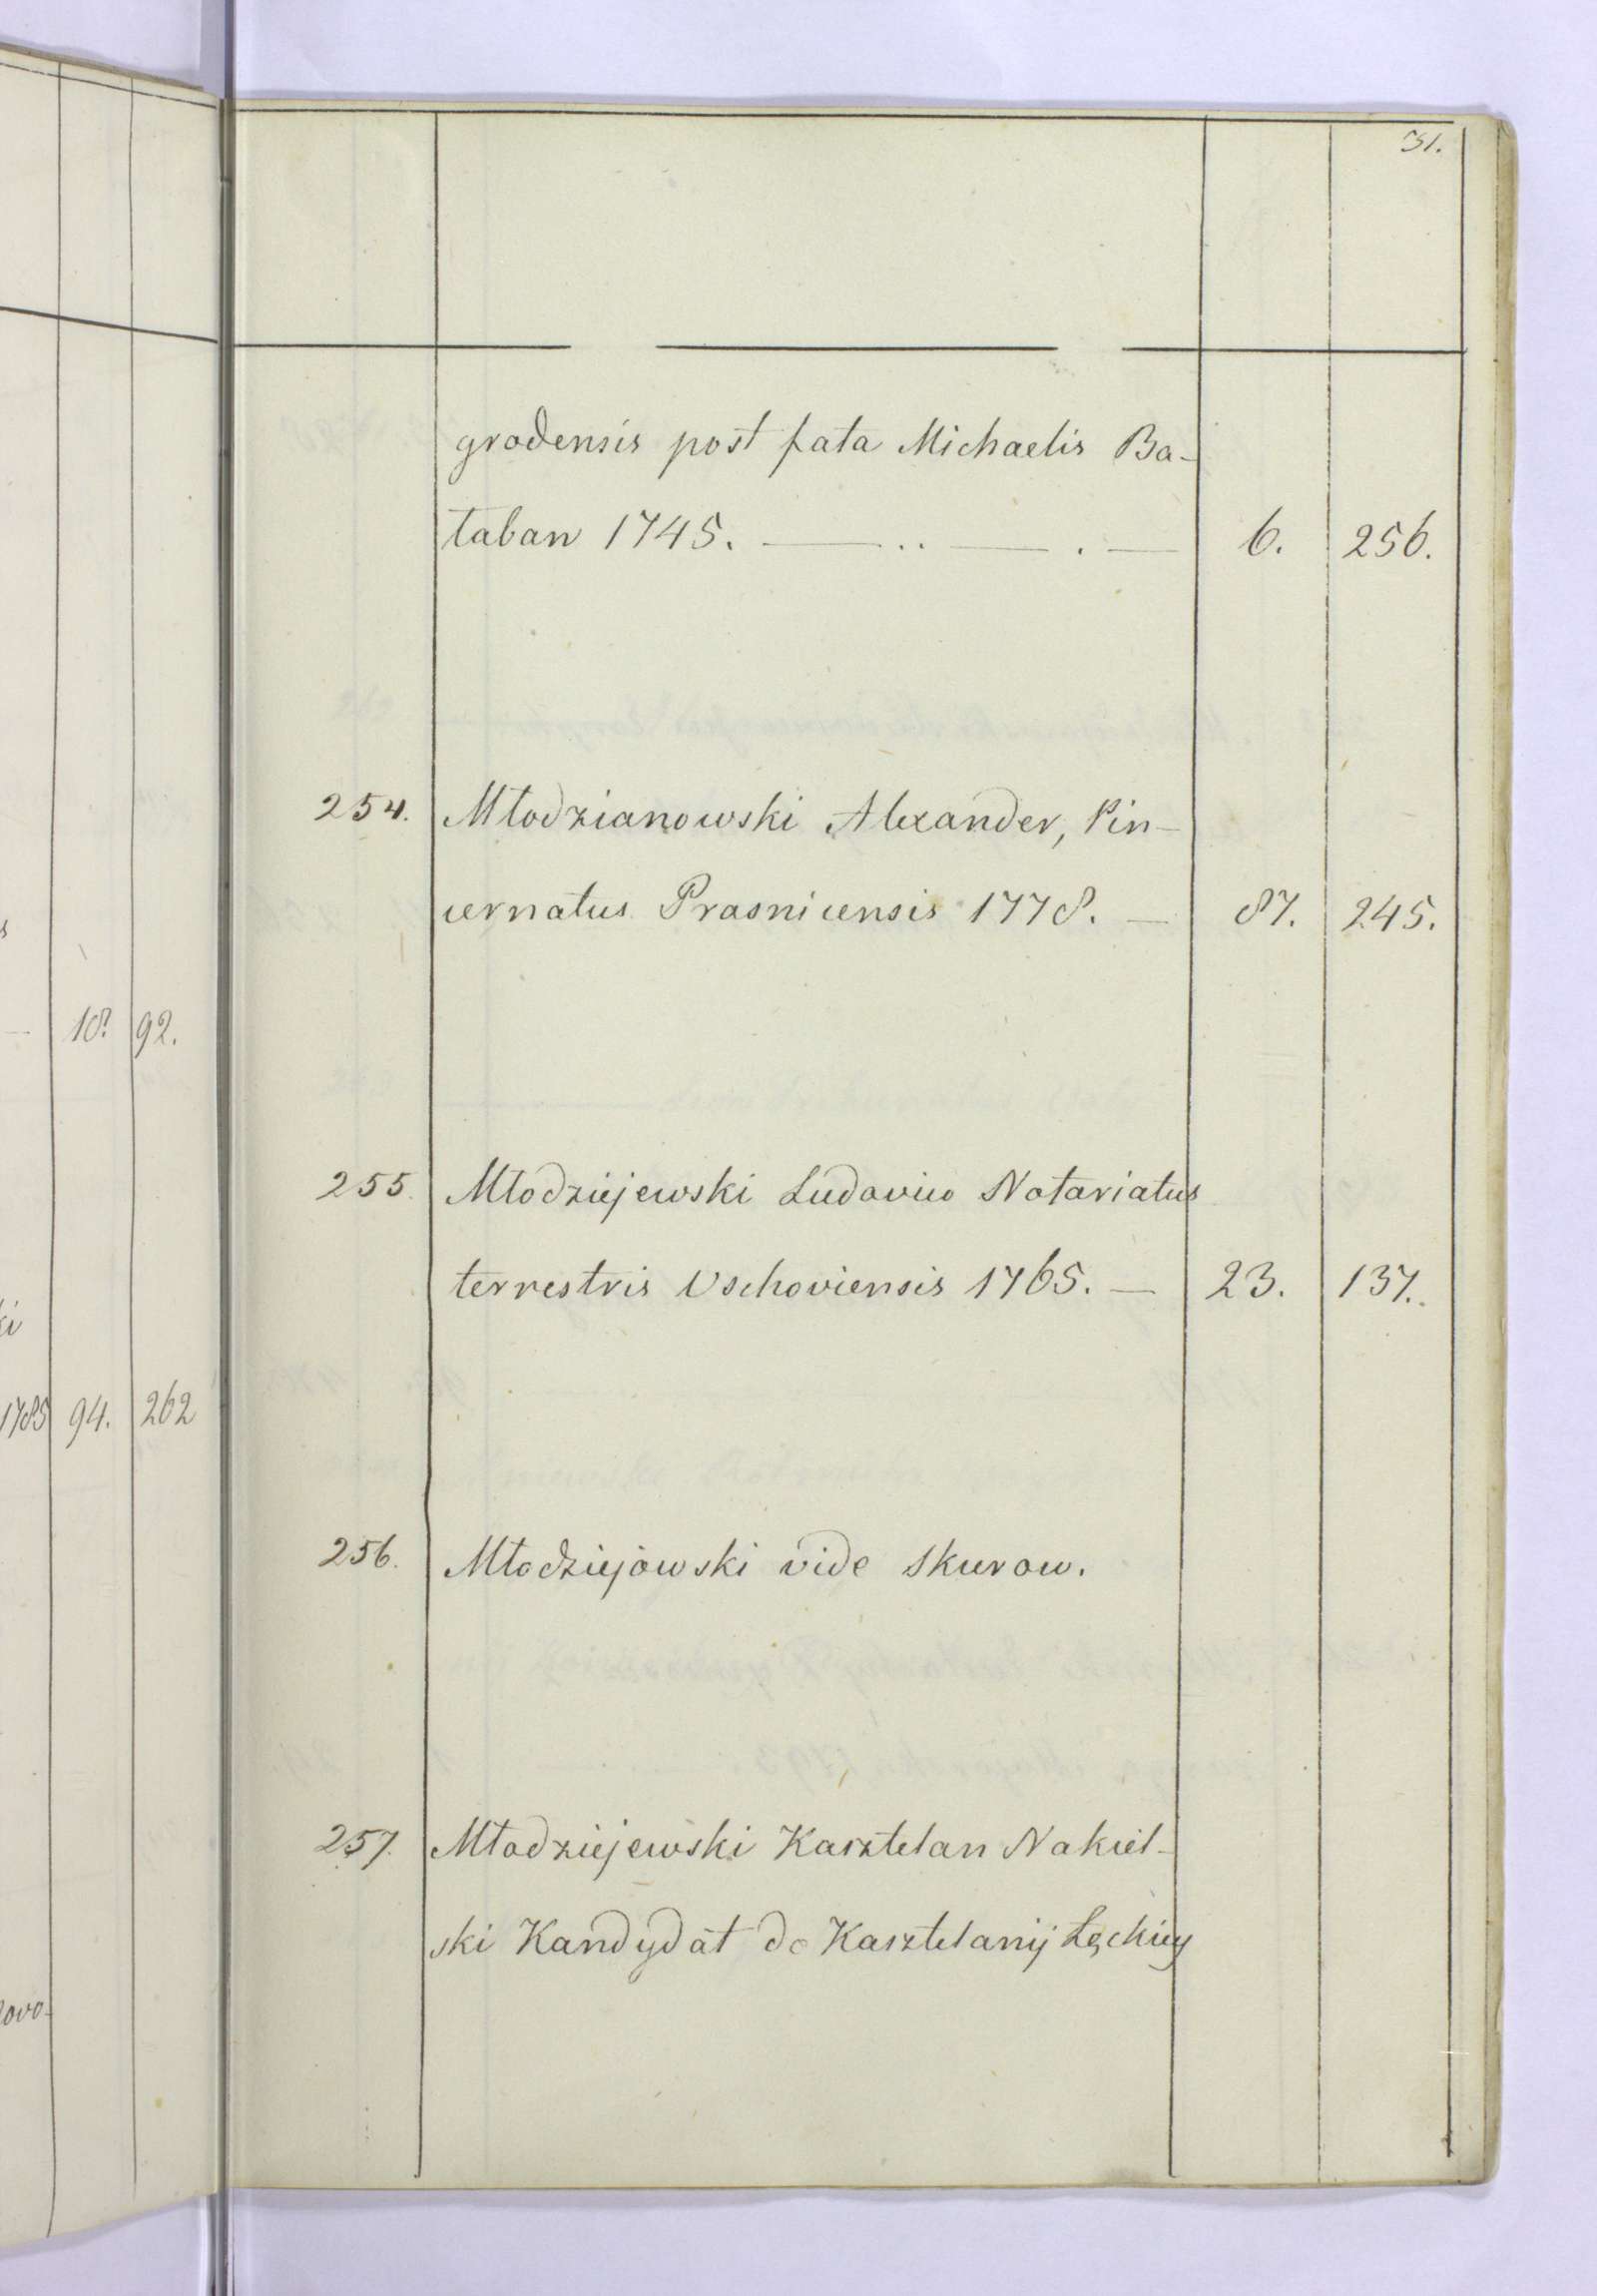 s
— 18. 92.
ki
1785 94. 262
lovo-
31.
grodensis post fata Michaelis Ba-
taban 1745. — .. — . — 6. 256.
254. Młodzianowski Alexander, Pin-
cernatus Prasnicensis 1778. — 87. 245.
255. Młodziejewski Ludovico Notariatus
terrestris Vschoviensis 1765. — 23. 137.
256. Młodziejowski vide Skurow.
257. Młodziejewski Kasztelan Nakiel-
ski Kandydat do Kasztelanij Łęckiey